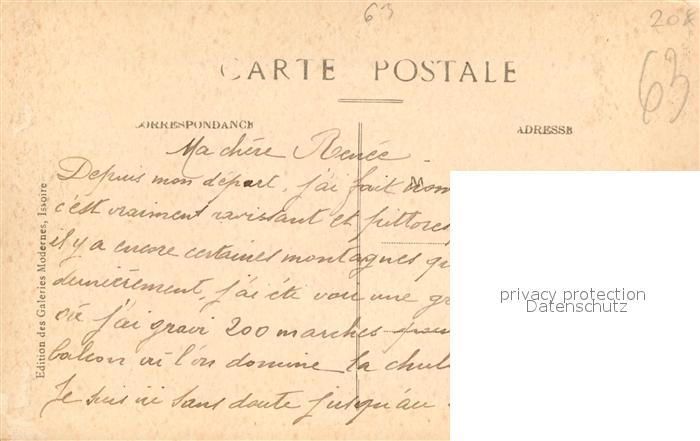 63
208
63
CARTE POSTALE
CORRESPONDANCE
ADRESSE
Ma chère Renée
Depuis mon départ, j'ai fait
c'est vraiment ravissant et pittores
il y a encore certaines montagnes qu
dernièrement, j'ai été voir une gr
où j'ai gravi 200 marches pour
balcon où l'on domine la chut
Je suis ici sans doute jusqu'au
Edition des Galeries Modernes, Issoire
privacy protection
Datenschutz